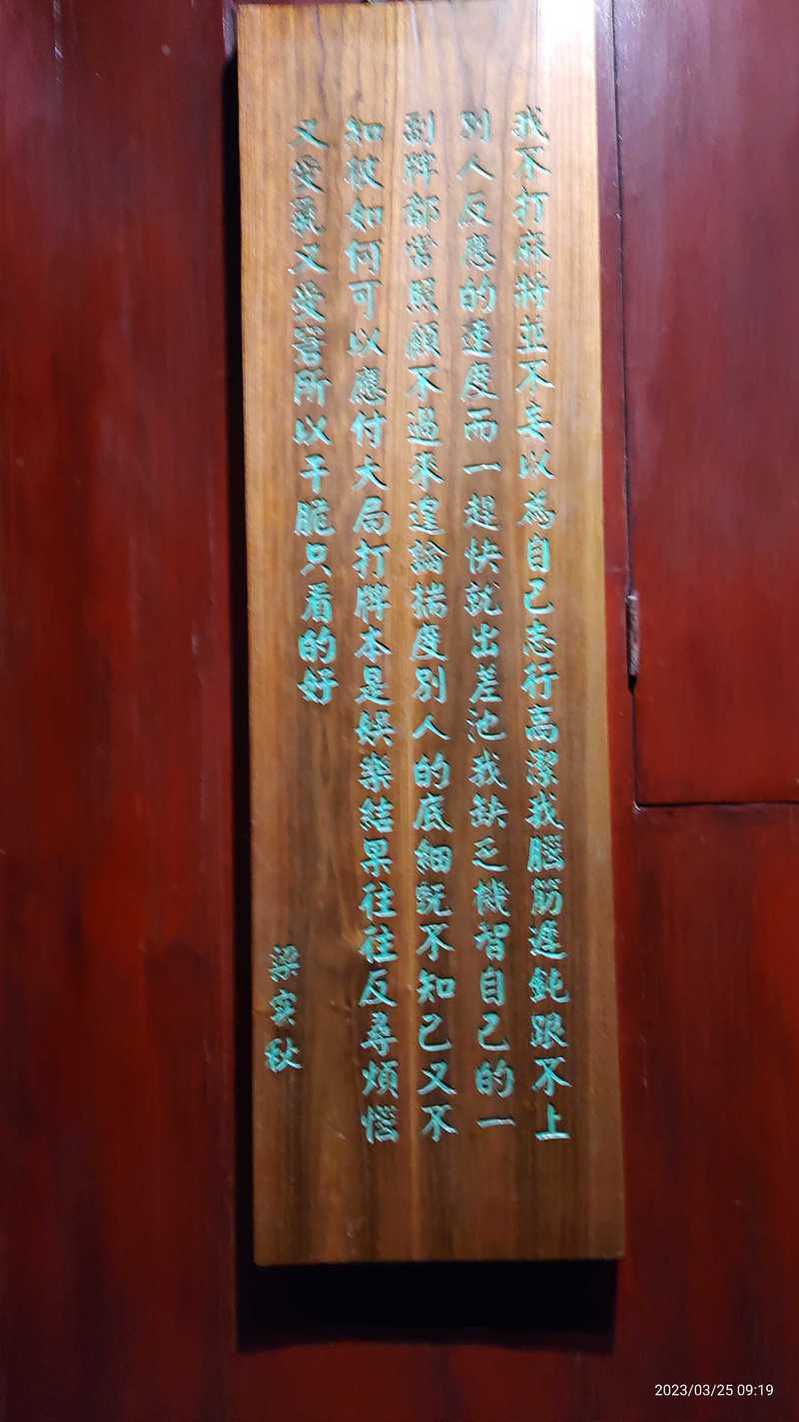 我不打麻將並不妄以為自己志行高潔我腦筋遲鈍跟不上
別人反應的速度而一趕快就出差池我缺乏機智自己的一
副牌都常照顧不過來遑論揣度別人的底細既不知己又不
知彼如何可以應付大局打牌本是娛樂結果往往反尋煩惱
又受氣又受窘所以干脆只看的好
梁实秋
2023/03/25 09:19